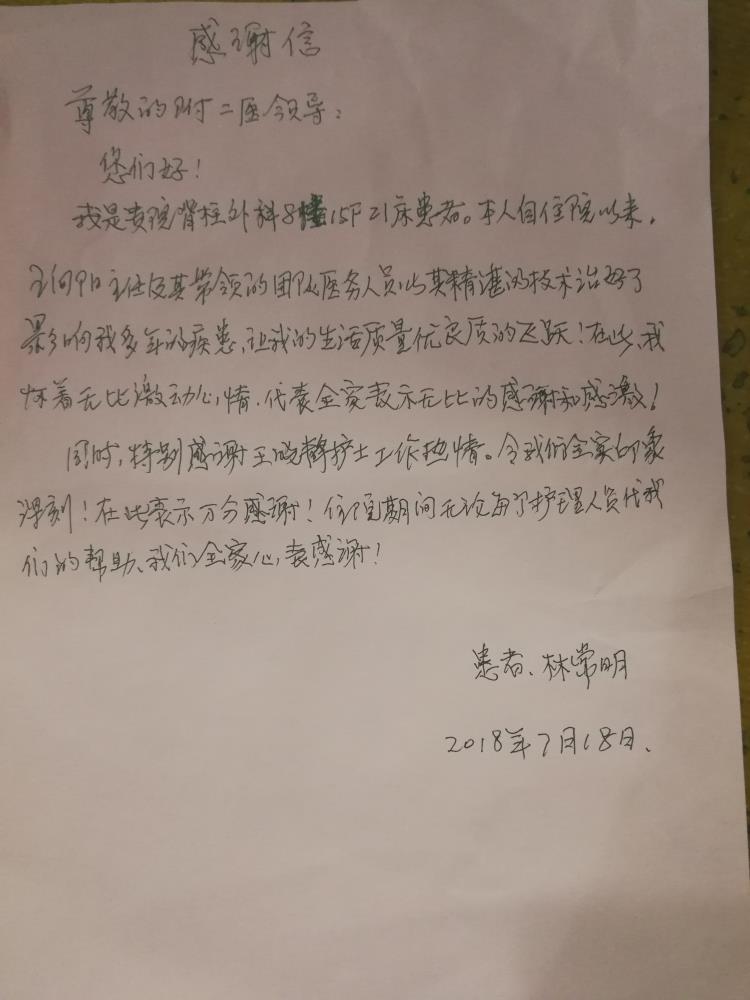 感谢信
尊敬的附二医领导：
您们好！
我是贵院脊柱外科8幢15F21床患者。本人自住院以来，
王向阳主任及其带领的团队医务人员以其精湛的技术治好了
影响我多年的疾患、让我的生活质量优良质的飞跃！在此、我
怀着无比激动心情、代表全家表示无比的感谢和感激！
同时，特别感谢王晓静护士工作热情。令我们全家印象
深刻！在此表示万分感谢！住院期间无论每个护理人员代我
们的帮助、我们全家心衷感谢！
患者、林常明
2018年7月18日、